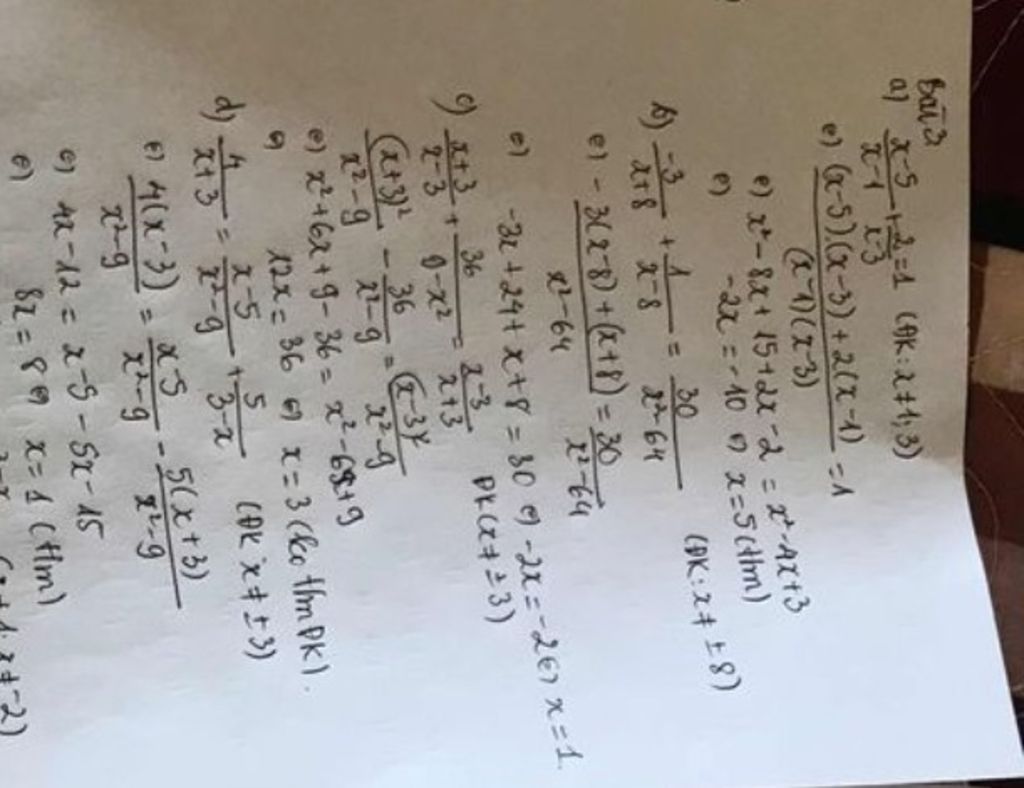 Bài 3
a) \frac{x-5}{x-1} + \frac{2}{x-3} = 1 (ĐK: x ≠ 1; 3)
⇔ \frac{(x-5)(x-3)+2(x-1)}{(x-1)(x-3)} = 1
⇔ x² - 8x + 15 + 2x - 2 = x² - 4x + 3
⇔ -2x = -10 ⇔ x = 5 (t/m)
b) \frac{-3}{x+8} + \frac{1}{x-8} = \frac{30}{x²-64} (ĐK: x ≠ ±8)
⇔ \frac{-3(x-8)+(x+8)}{x²-64} = \frac{30}{x²-64}
⇔ -3x + 24 + x + 8 = 30 ⇔ -2x = -2 ⇔ x = 1.
c) \frac{x+3}{x-3} + \frac{36}{9-x²} = \frac{x-3}{x+3} ĐK (x ≠ ±3)
\frac{(x+3)²}{x²-9} - \frac{36}{x²-9} = \frac{(x-3)²}{x²-9}
⇔ x² + 6x + 9 - 36 = x² - 6x + 9
⇔ 12x = 36 ⇔ x = 3 (ko t/m ĐK).
d) \frac{4}{x+3} = \frac{x-5}{x²-9} + \frac{5}{3-x} (ĐK: x ≠ ±3)
⇔ \frac{4(x-3)}{x²-9} = \frac{x-5}{x²-9} - \frac{5(x+3)}{x²-9}
⇔ 4x - 12 = x - 5 - 5x - 15
⇔ 8x = 8 ⇔ x = 1 (t/m)